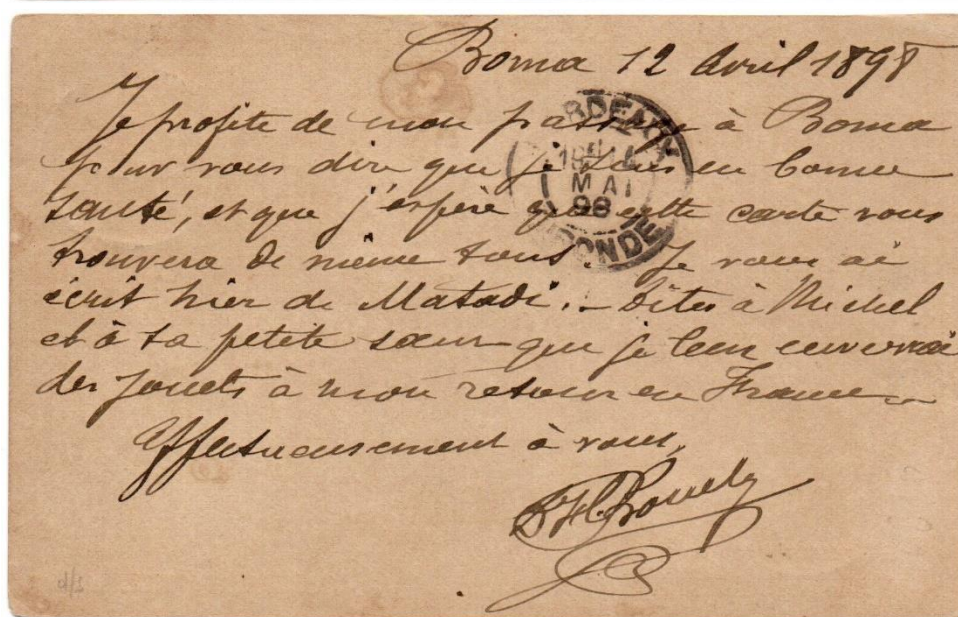 Boma 12 Avril 1898
Je profite de mon passage à Boma
pour vous dire que je suis en bonne
santé, et que j'espère que cette carte vous
trouvera de même tous. Je vous ai
écrit hier de Matadi. - Dites à Michel
et à sa petite sœur que je leur enverrai
des jouets à mon retour en France
Affectueusement à vous
BORDEAUX
MAI
98
GIRONDE